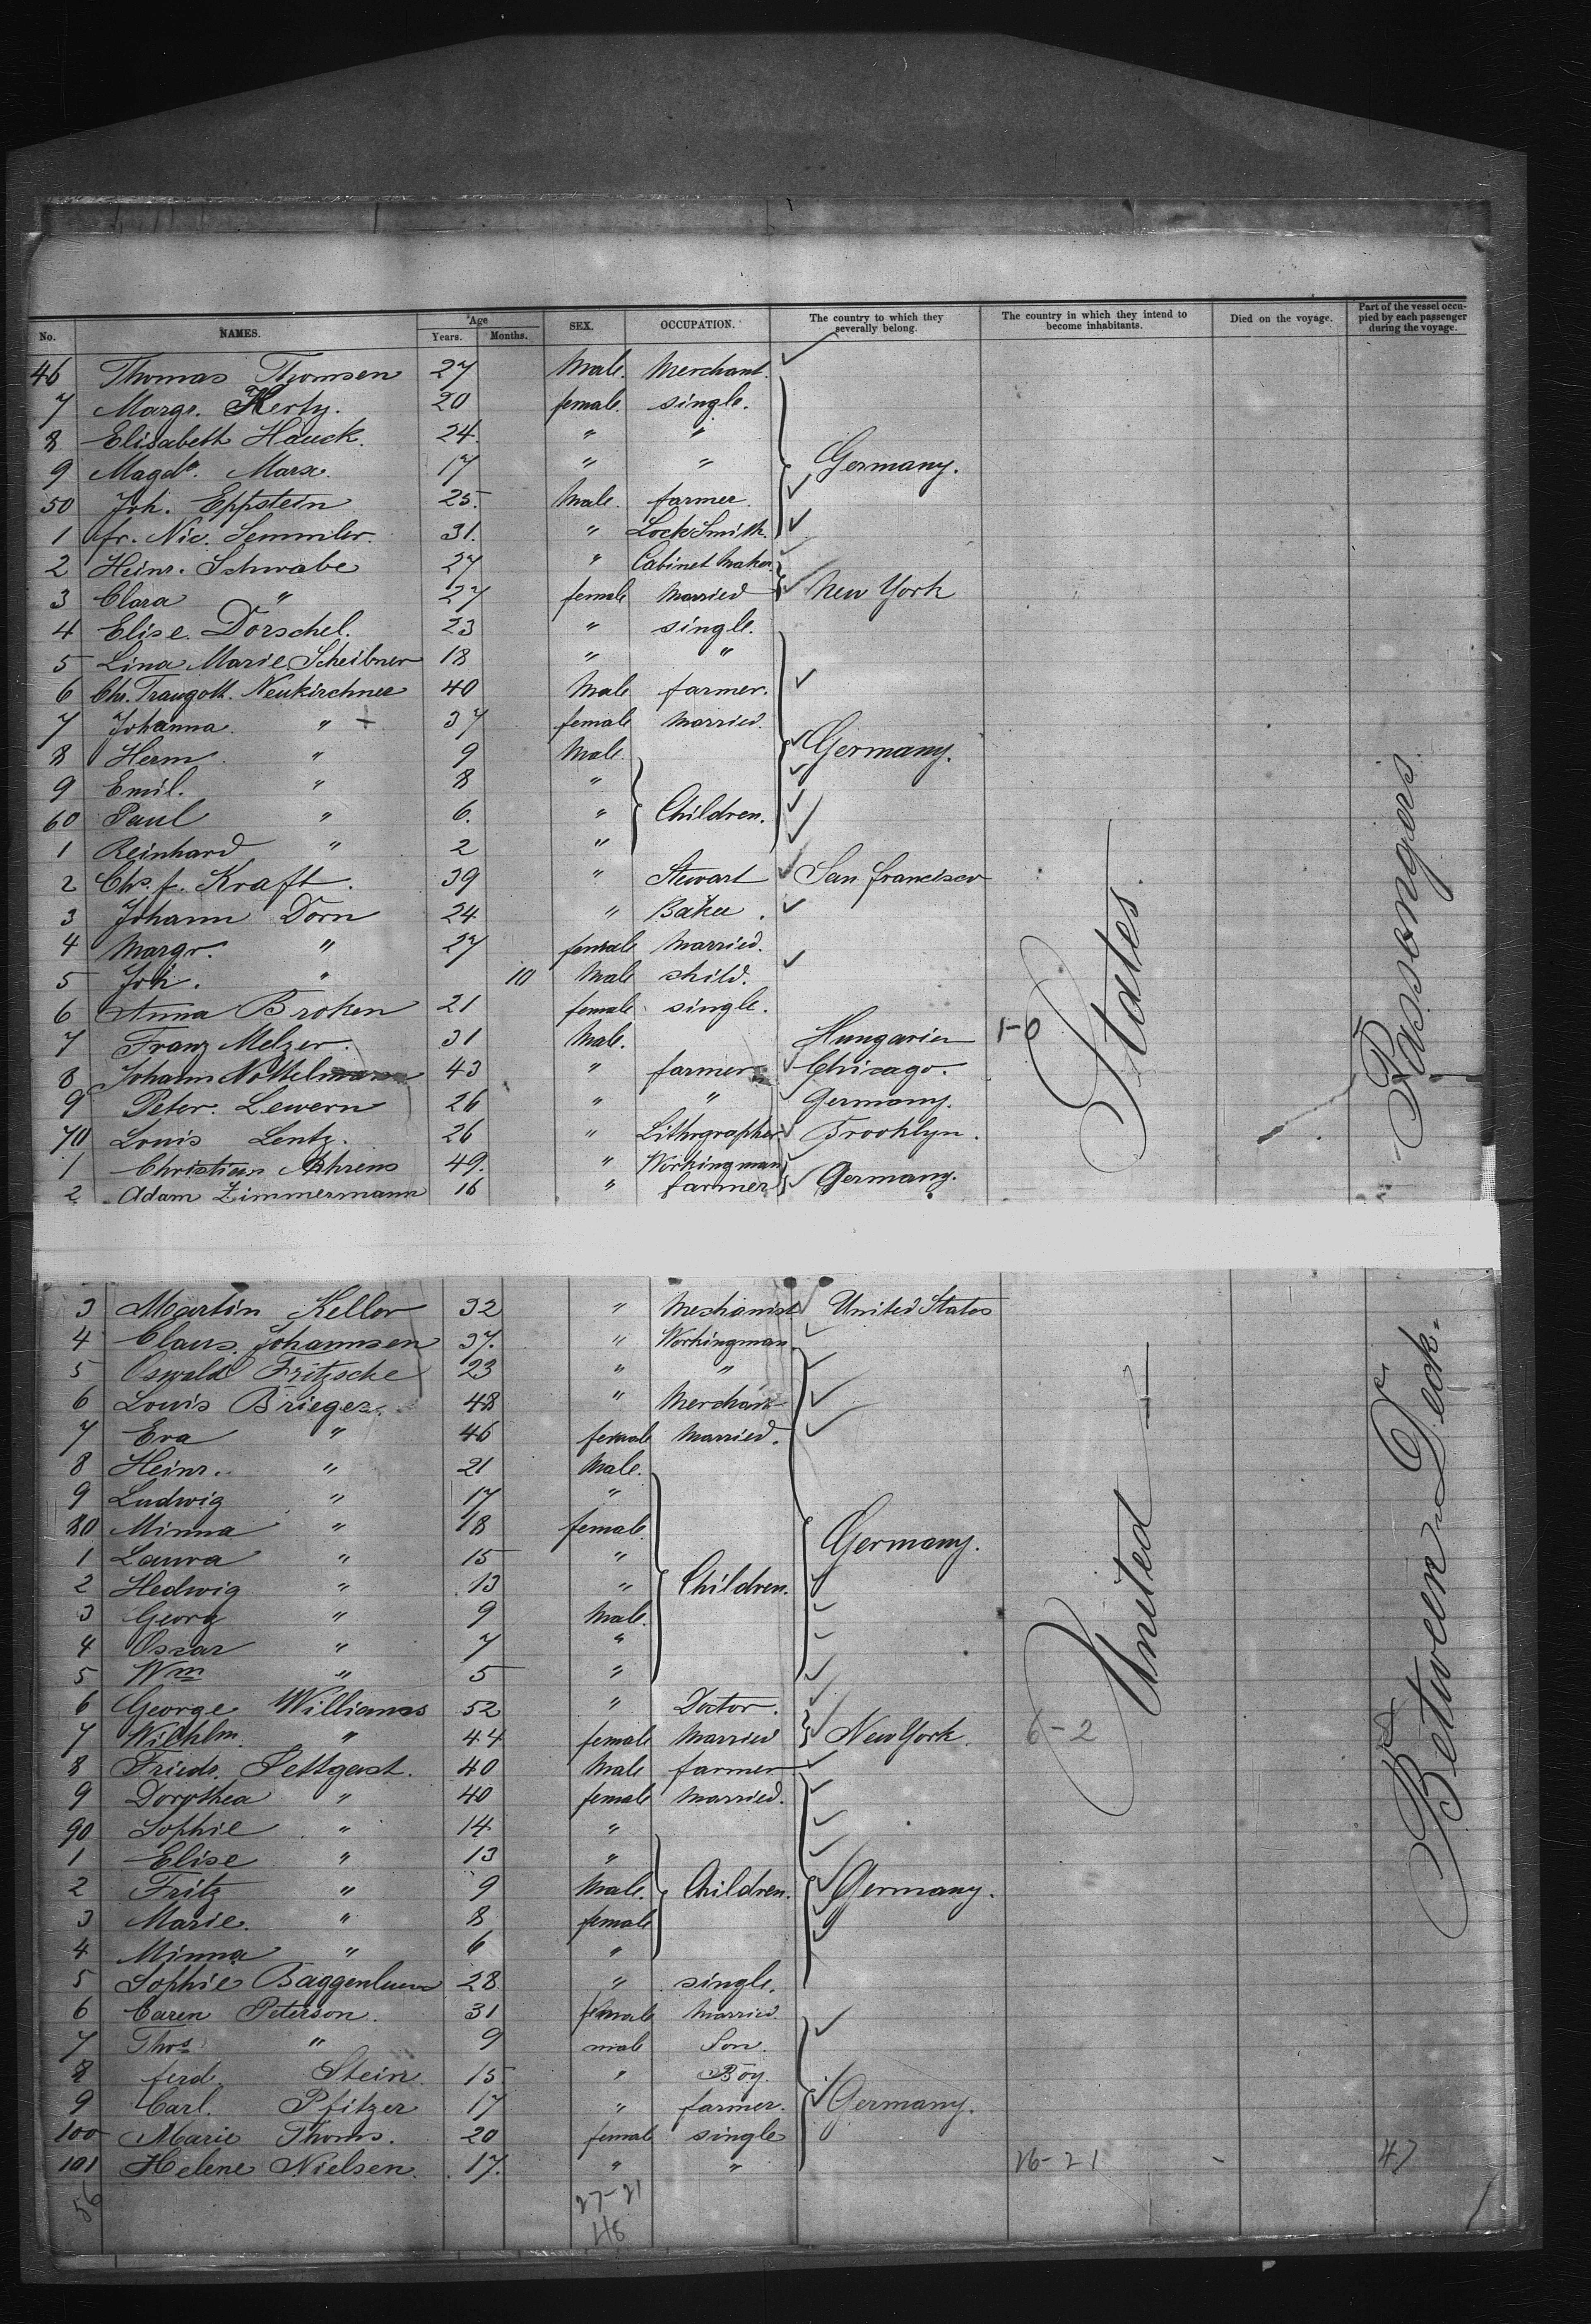 No. NAMES. Age Years. Months. SEX. OCCUPATION. The country to which they severally belong. The country in which they intend to become inhabitants. Died on the voyage. Part of the vessel occupied by each passenger during the voyage.
46 Thomas Thomsen 27 Male. Merchant.
7 Margr. Herty. 20 female. single.
8 Elisabeth Hauck. 24. " "
9 Magda. Marx. 17 " " Germany.
50 Joh. Eppstein 25. Male. farmer.
1 fr. Nic. Semmler. 31. " Lock Smith.
2 Heinr. Schwabe 27 " Cabinet Maker
3 Clara " 27 female Married New York
4 Elise. Dorschel. 23 " single.
5 Lina Marie Scheibner 18 " "
6 Chr. Traugott. Neukirchner 40 Male farmer.
7 Johanna. " + 37 female Married.
8 Herm. " 9 Male. Germany.
9 Emil. " 8 "
60 Paul " 6. " Children.
1 Reinhard " 2 "
2 Chs. f. Kraft. 39 " Stewart San francisco
3 Johann Dorn 24 " Baker.
4 Margr. " 27 female Married.
5 Joh. " 10 Male child.
6 Anna Broken 21 female single.
7 Franz Melzer. 31 Male. Hungarien 1-0
8 Johann Nottelmann 43 " farmer Chicago.
9 Peter. Lewern 26 " " Germany.
70 Louis Lentz. 26 " Lithographer Brooklyn.
1 Christian Ahrens 49. " Workingman
2 Adam Zimmermann 16 " farmer Germany.
3 Martin Keller 32 " Mechanist United States
4 Claus. Johannsen 37. " Workingman
5 Oswald Fritzsche 23 " "
6 Louis Brieger. 48 " Merchant
7 Eva " 46 female Married.
8 Heinr. " 21 Male.
9 Ludwig " 17 "
80 Minna " 18 female.
1 Laura " 15 " Germany.
2 Hedwig " 13 " Children.
3 Georg " 9 Male.
4 Oscar " 7 "
5 Wm " 5 "
6 George Williams 52 " Doctor.
7 Wilhlm. " 44 female Married New York. 6-2
8 Friedr. Pettgast. 40 Male farmer
9 Dorothea " 40 female Married.
90 Sophie " 14 "
1 Elise " 13 "
2 Fritz " 9 Male. Children. Germany.
3 Marie. " 8 female
4 Minna " 6 "
5 Sophie 28 " single.
6 Caren Peterson. 31 female Married.
7 Thos " 9 male Son.
8 ferd. Stein. 15 " Boy.
9 Carl. Pfitzer 17 " farmer. Germany.
100 Marie Thoms. 20 female single
101 Helene Nielsen. 17. " " 26-21 47
56 27-21
48
United States
Between Deck Passengers